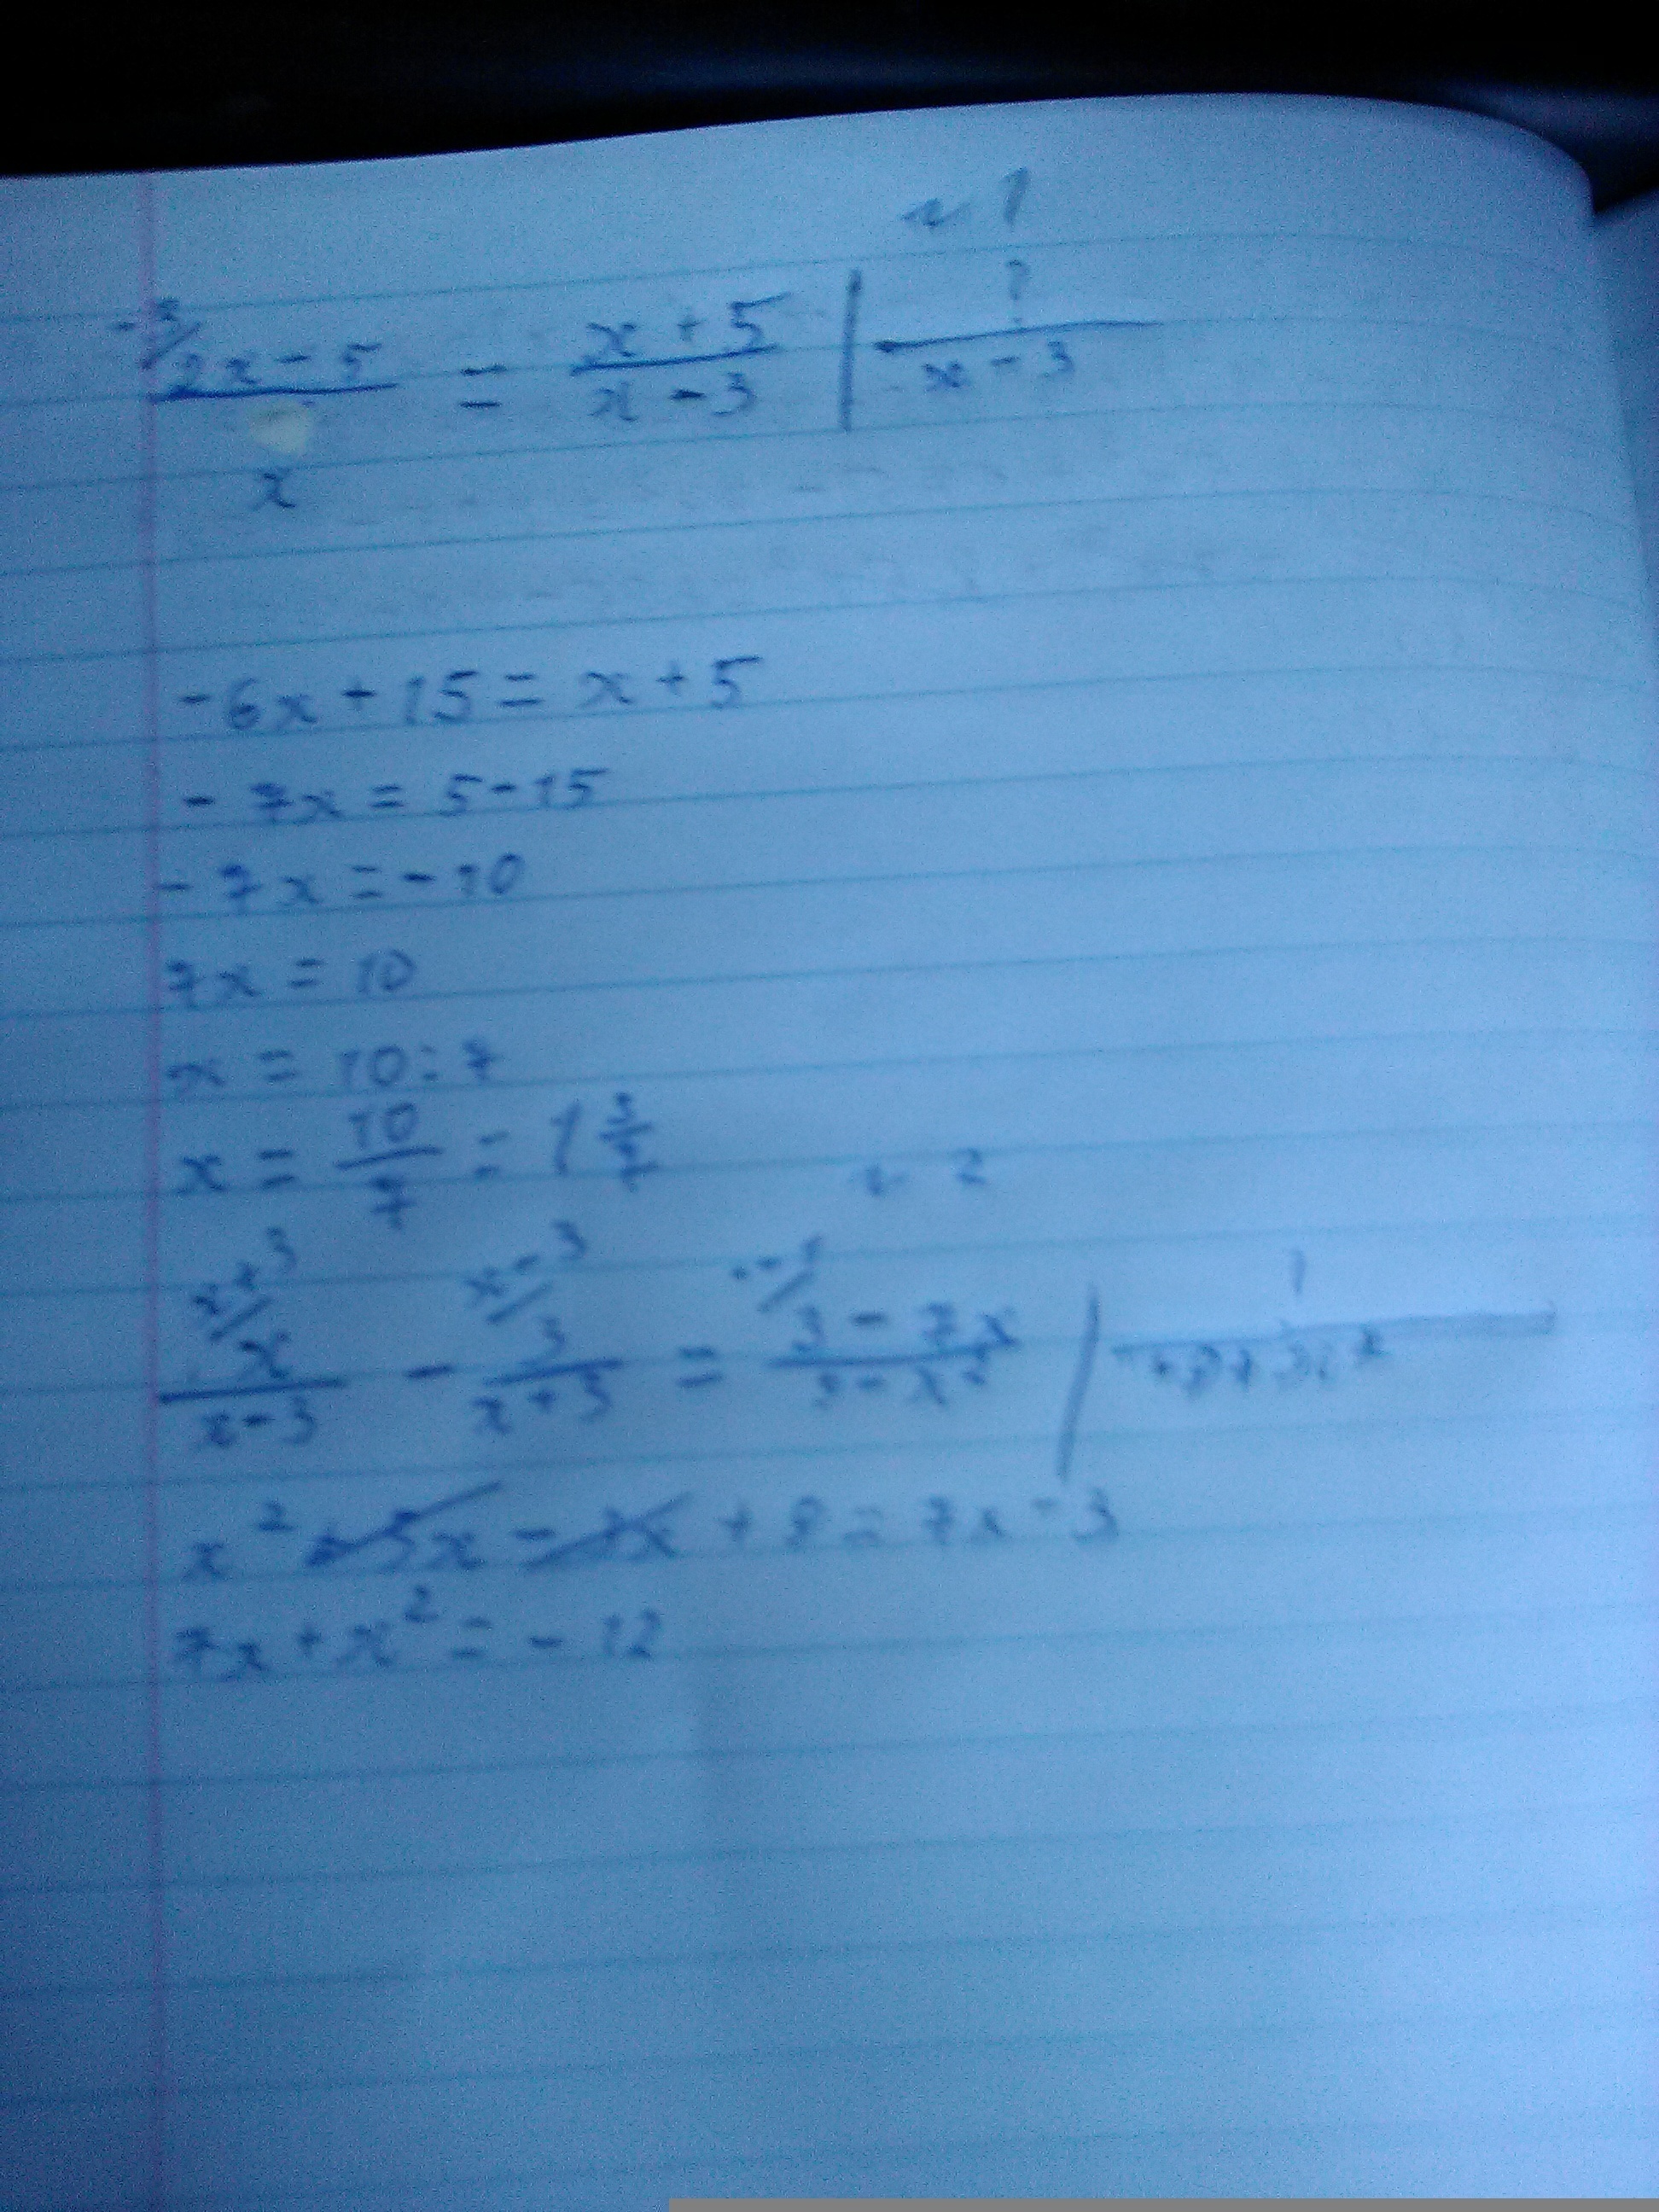 1
-3/ 2x-5 / x = x+5 / x-3 | ? / x-3
-6x+15=x+5
-7x=5-15
-7x=-10
7x=10
x=10:7
x = 10/7 = 1 3/7
2
x+3/ x / x-3 - x-3/ 3 / x+3 = -1/ 3-7x / 9-x² |
x² + 3x - 3x + 9 = 7x - 3
7x+x²=-12